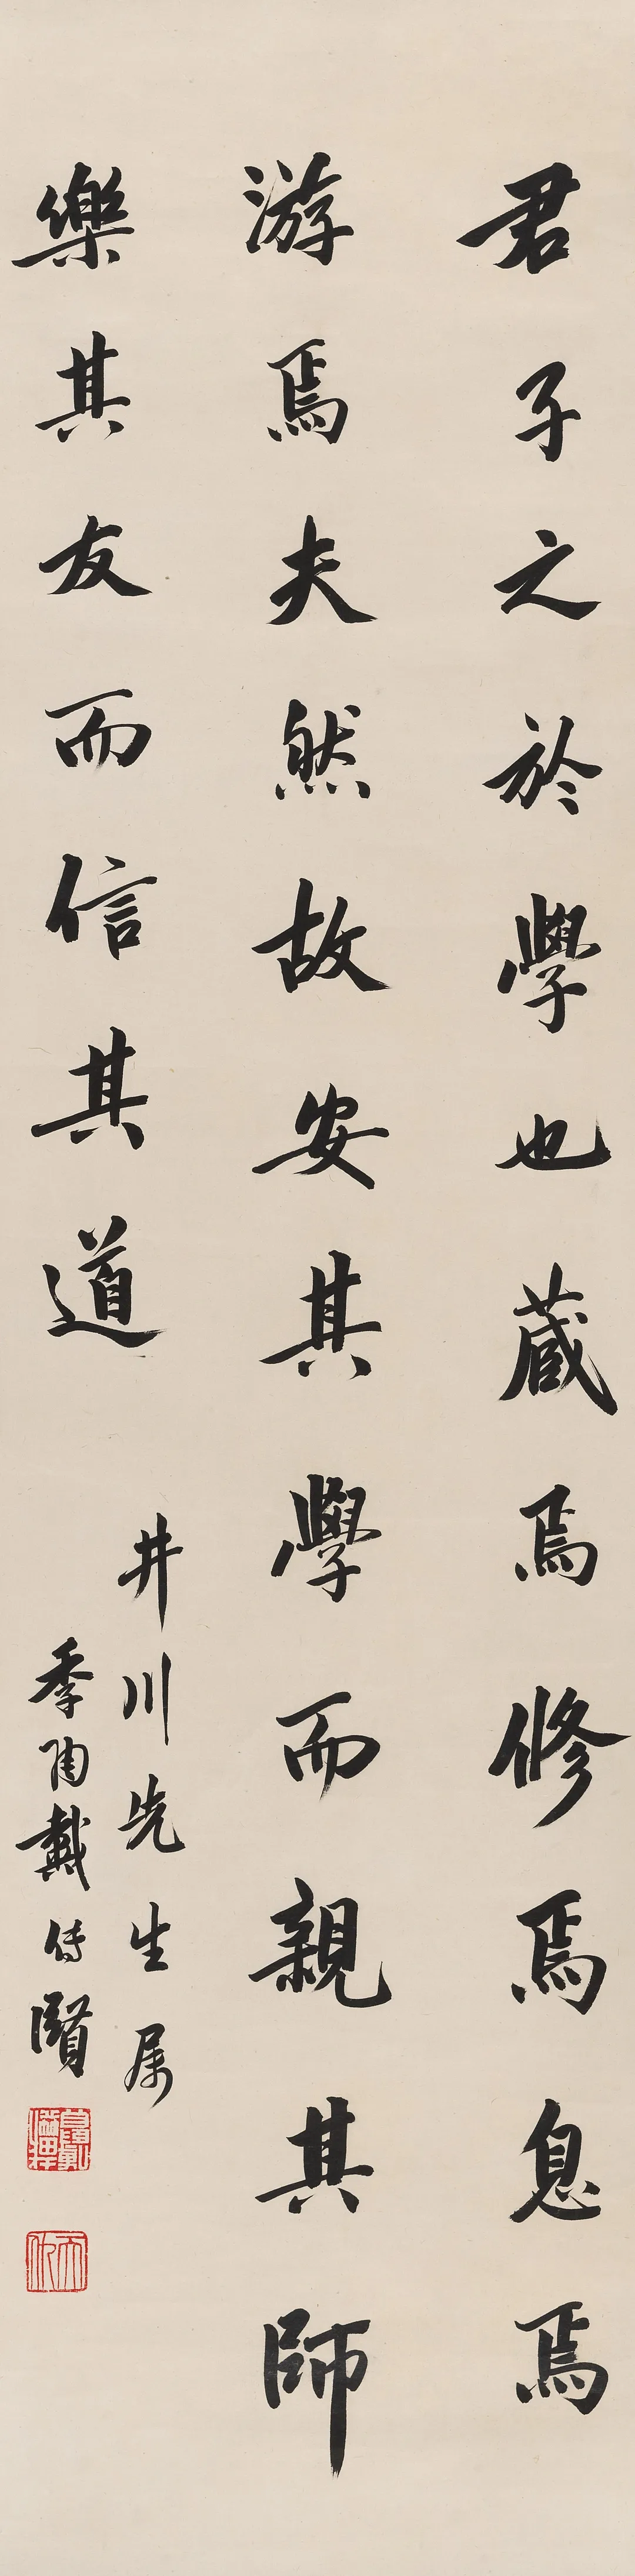 君子之於學也蔵焉修焉息焉
游焉夫然故安其學而親其師
樂其友而信其道
井川先生属
季陶戴傳賢